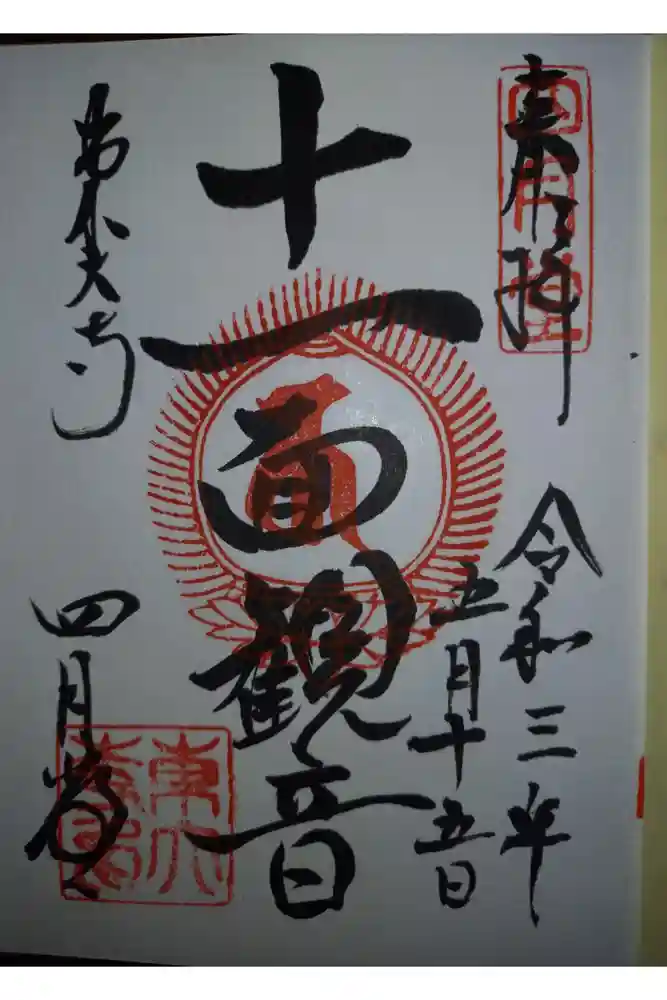 奉拝
四月堂
令和三年
五月十五日
十一面觀音
東大寺
四月堂